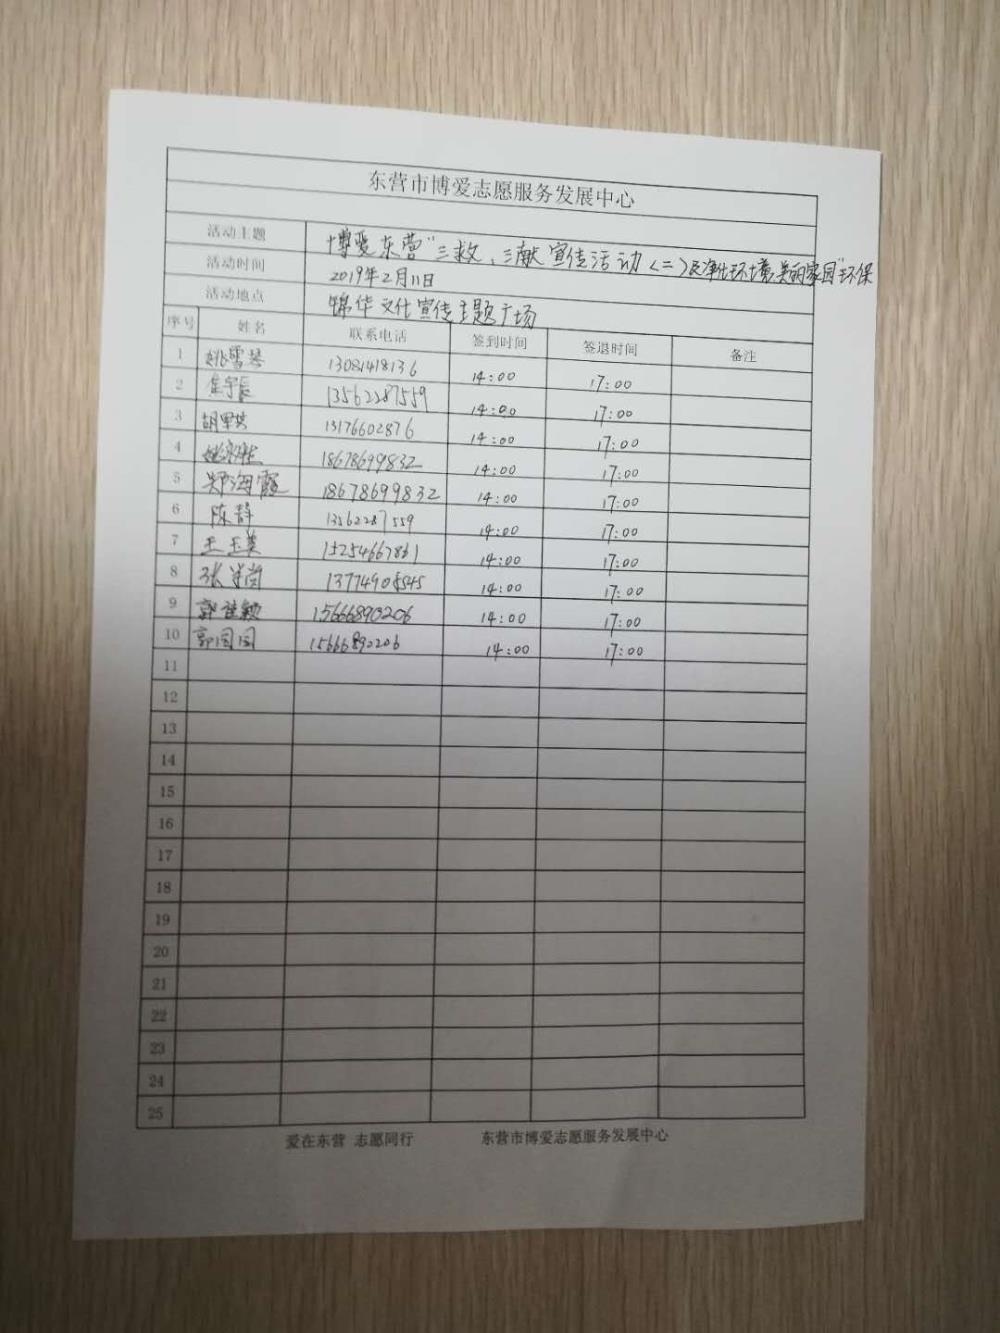 东营市博爱志愿服务发展中心
活动主题 博爱东营"三救、三献宣传活动(二)及净化环境美丽家园"环保
活动时间 2019年2月11日
活动地点 锦华文化宣传主题广场
序号 姓名 联系电话 签到时间 签退时间 备注
1 姚雪琴 13081418136 14:00 17:00
2 13562287559 14:00 17:00
3 13176602876 14:00 17:00
4 18678699832 14:00 17:00
5 郑海霞 18678699832 14:00 17:00
6 陈静 13562287559 14:00 17:00
7 王玉美 15254667861 14:00 17:00
8 14:00 17:00
9 15666890206 14:00 17:00
10 郭园园 15666890206 14:00 17:00
11
12
13
14
15
16
17
18
19
20
21
22
23
24
25
爱在东营 志愿同行 东营市博爱志愿服务发展中心